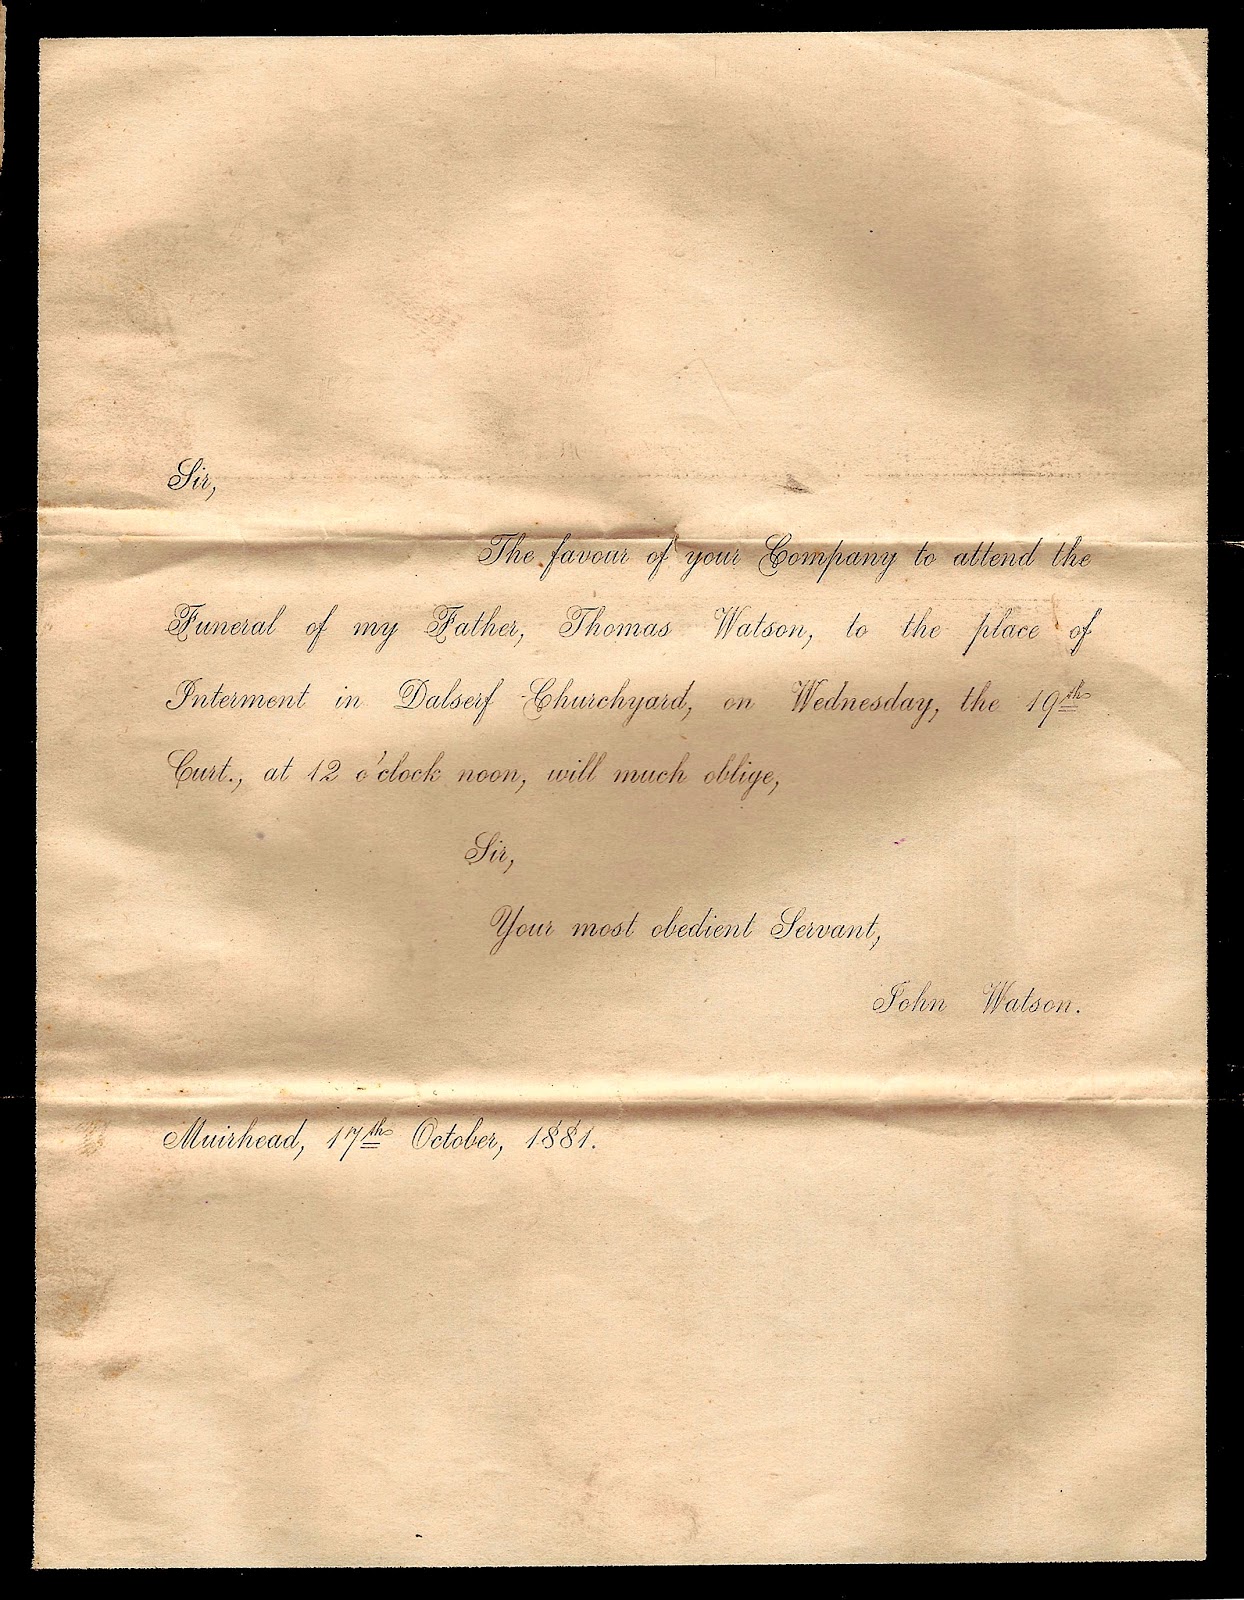 Sir,
The favour of your Company to attend the
Funeral of my Father, Thomas Watson, to the place of
Interment in Dalserf Churchyard, on Wednesday, the 19th
Curt., at 12 o'clock noon, will much oblige,
Sir,
Your most obedient Servant,
John Watson.
Muirhead, 17th October, 1881.